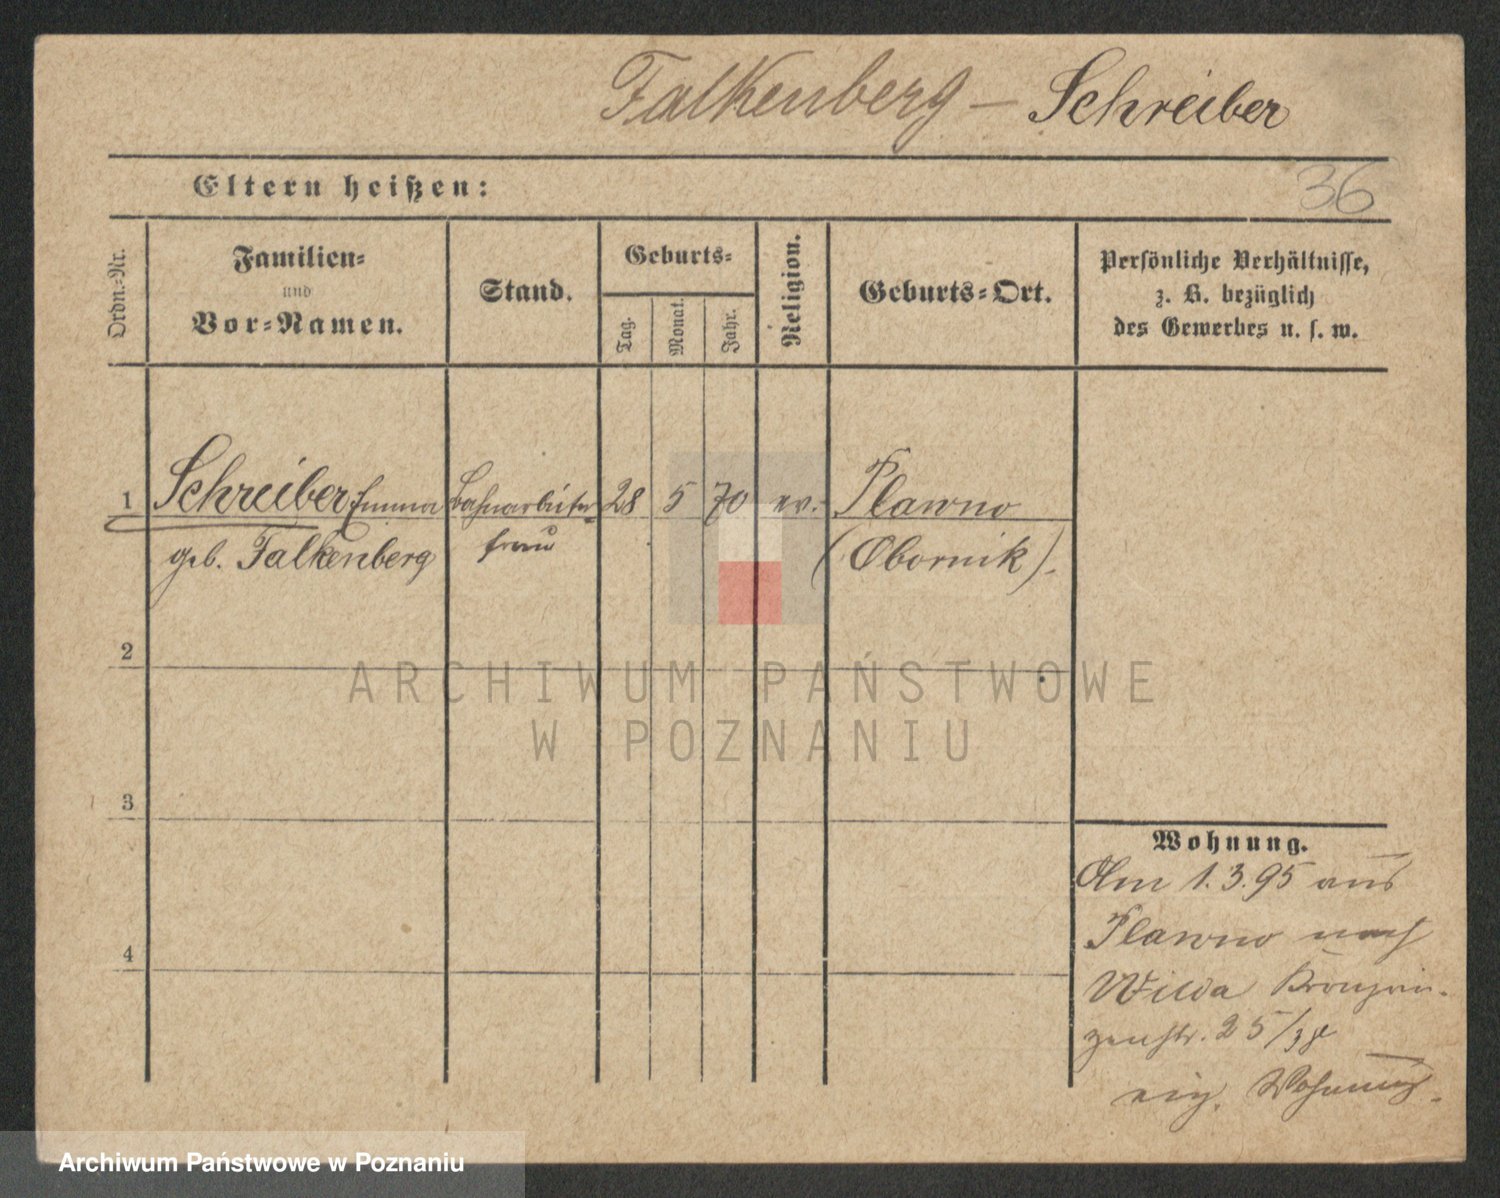 Falkenberg – Schreiber
Eltern heißen:
36
Ordn.-Nr.
Familien-
und
Vor-Namen.
Stand.
Geburts-
Tag.
Monat.
Jahr.
Religion.
Geburts-Ort.
Persönliche Verhältnisse,
z. B. bezüglich
des Gewerbes u. s. w.
1 Schreiber Emma Bahnarbeiter 28 5 70 ev. Plawno
geb. Falkenberg frau (Obornik).
2
ARCHIWUM PAŃSTWOWE
W POZNANIU
3
Wohnung.
Am 1.3.95 aus
Plawno nach
4
Wilda Kronprin-
zenstr. 25/
eig. Wohnung.
Archiwum Państwowe w Poznaniu